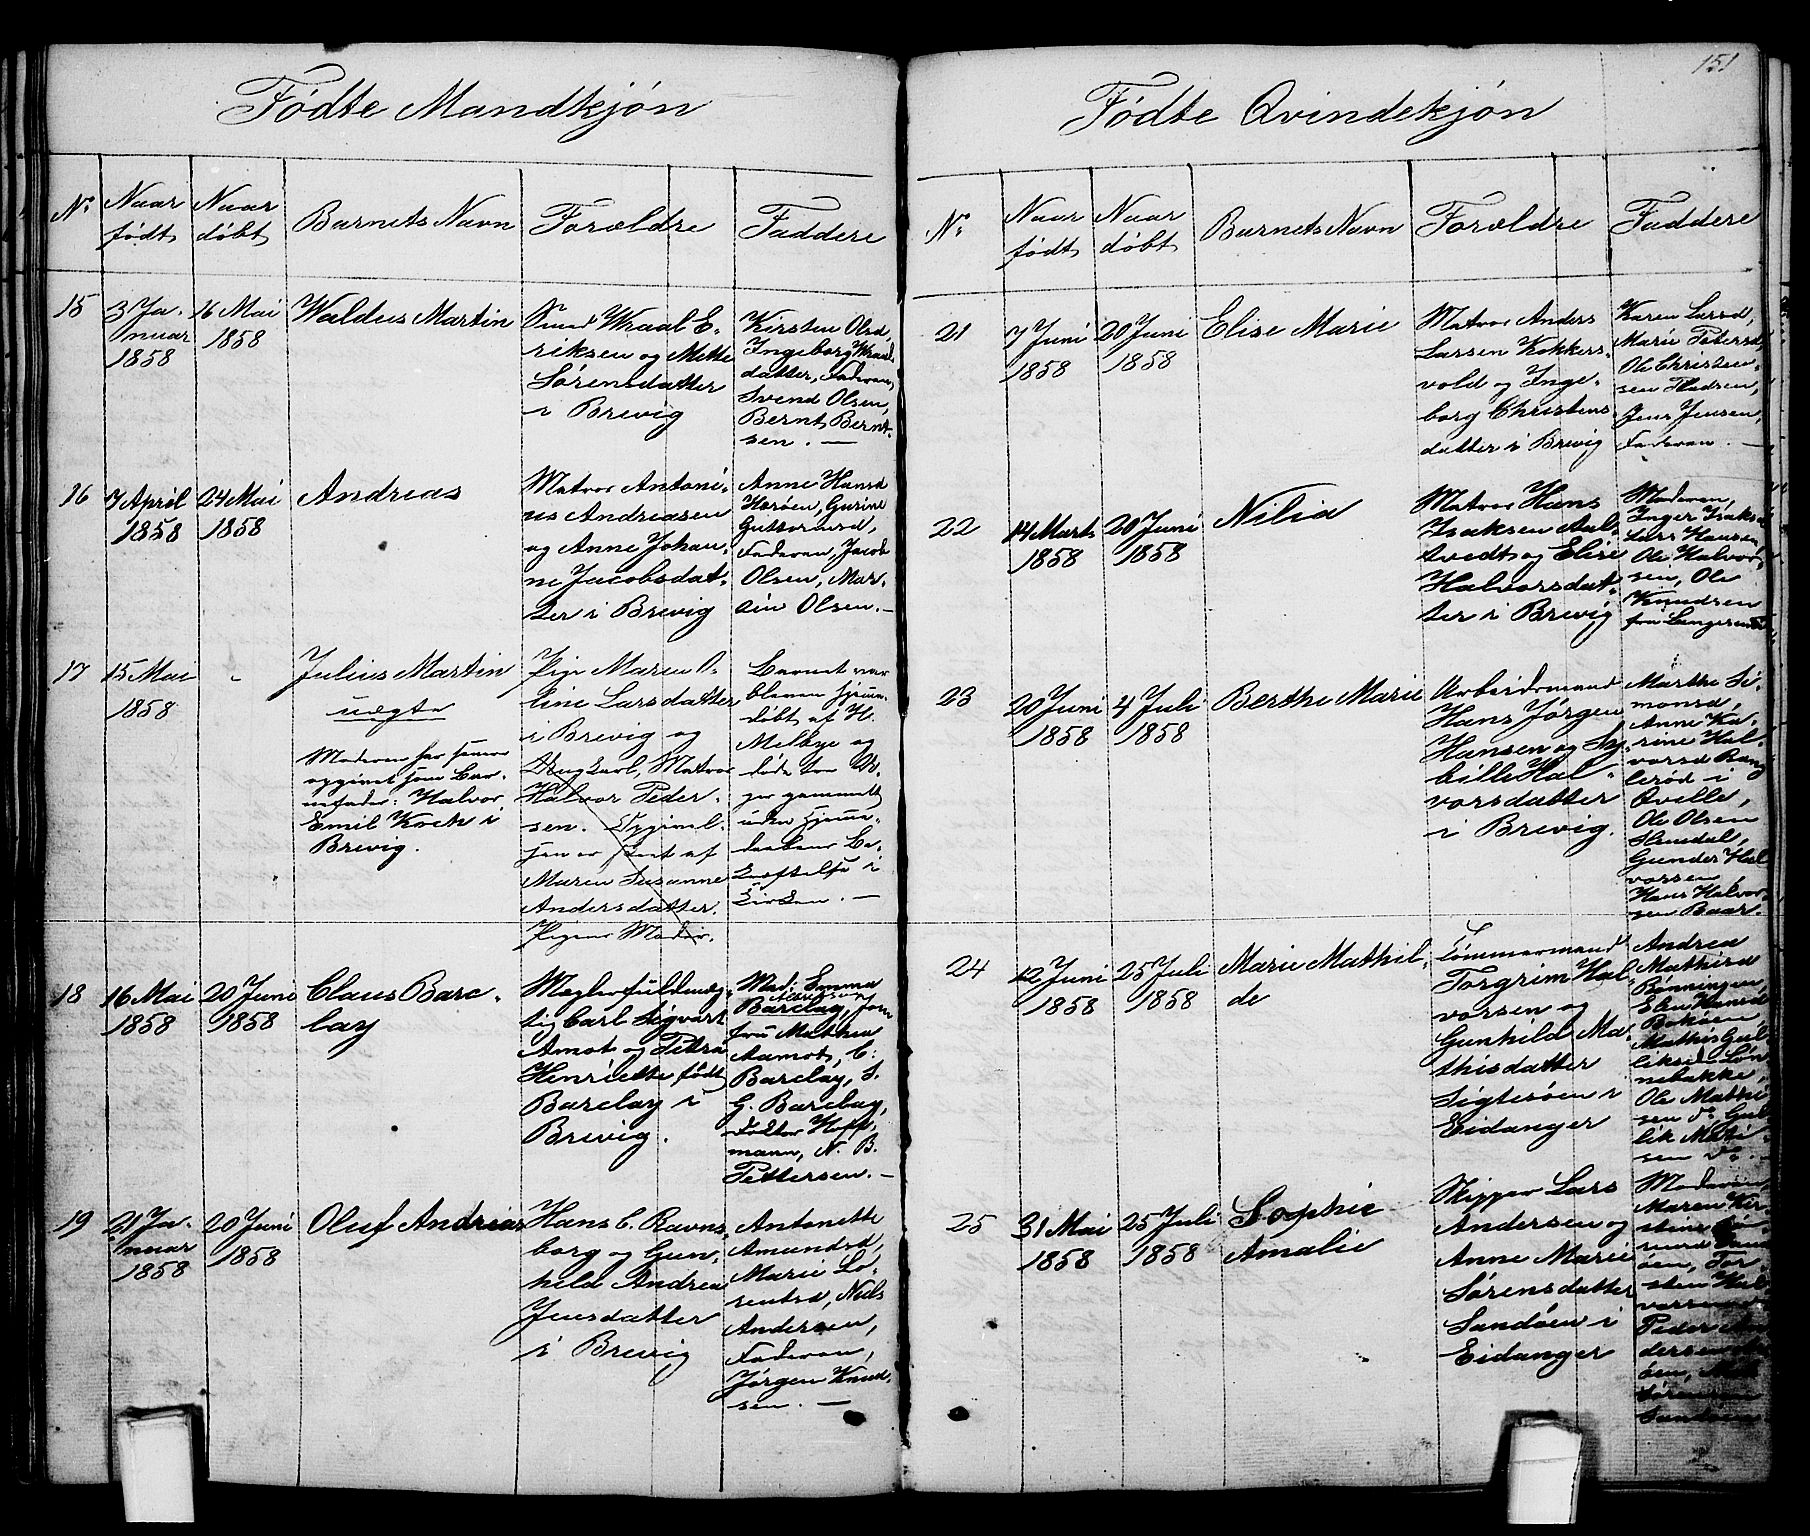 151
Fødte Mandkjøn
No
Naar født
Naar døbt
Barnets Navn
Forældre
Faddere
15
3 Ja-
nuar
1858
16 Mai
1858
Waldus Martin
Wraal E-
riksen og Mette
Sørensdatter
i Brevig
Kirsten Olsd,
Ingeborg Wraals-
datter, Faderen,
Svend Olsen,
Bernt Bernt-
sen. —
16
7 April
1858
24 Mai
1858
Andreas
Matros Antoni-
us Andreasen
og Anne Johan-
ne Jacobsdat-
ter i Brevig
Anne Hansd
Gurine
Guttormsd,
Faderen, Jacob
Olsen, Mar-
Olsen. —
17
15 Mai
1858
Julius Martin
uægte
Moderen har senere
opgivet som Bar-
nefader: Halvor
Emil Koch i
Brevig.
Pige Maren O-
line Larsdatter
i Brevig og
Ungkarl, Matros
Halvor Peder-
sen. Opgivel-
sen er skeet af
Maren Susanne
Andersdatter.
Pigens Moder.
Barnet var
bleven hjem-
døbt af H.
Melbye og
døde tre U-
ger gammelt
uden Hjem-
daabens Be-
kræftelse i
Kirken. —
18
16 Mai
1858
20 Juni
1858
Claus Barc-
lay
Mæglerfuldmæg-
tig Carl Sigvart
Amot og Petra
Henriette født
Barclay i
Brevig.
Mad: Emma
Barclay, Jom-
fru Mathea
Aamot, C:
Barclay, S.
G. Barclay,
Doktor Hoff-
mann, N. B.
Pettersen. —
19
21 Ja-
nuar
1858
20 Juni
1858
Oluf Andreas
Hans C. Ravns-
borg og Gun-
hild Andrea
Jensdatter
i Brevig
Antonette
Amundsd,
Marie Lo-
rentsd, Niels
Andersen,
Faderen,
Jørgen Knud-
sen. —
Fødte Qvindekjøn
No
Naar født
Naar døbt
Barnets Navn
Forældre
Faddere
21
7 Juni
1858
20 Juni
1858
Elise Marie
Matros Anders
Larsen Kokkers-
vold og Inge-
borg Christens-
datter i Brevig
Karen Larsd,
Marie Petersd,
Ole Christen-
sen
Jens Jensen,
Faderen. —
22
14 Marts
1858
20 Juni
1858
Nilia
Matros Hans
Isaksen Aal-
tvedt og Elise
Halvorsdat-
ter i Brevig
Moderen,
Inger Isaksd,
Lars Hansen,
Ole Halvor-
sen, Ole
Knudsen
fra
23
20 Juni
1858
4 Juli
1858
Berthe Marie
Arbeidsmand
Hans Jørgen
Hansen og Sy-
bille Hal-
vorsdatter
i Brevig.
Marthe Si-
monsd,
Anne Ka-
rine Hal-
vorsd Rang-
lerød i
Qvelle,
Ole Olsen
Gunder Hal-
vorsen
Hans Halvor-
sen Baar.
24
12 Juni
1858
25 Juli
1858
Marie Mathil-
de
Tømmermand
Torgrim Hal-
vorsen og
Gunhild Ma-
thisdatter
Sigtesøen i
Eidanger
Andrea
Mathisd
Elen Hansd
Mathis Gul-
liksen
Ole Mathi-
sen do Gul-
lik Mathi-
sen do. —
25
31 Mai
1858
25 Juli
1858
Sophie
Amalie
Skipper Lars
Andersen og
Anne Marie
Sørensdatter
Sandøen i
Eidanger
Moderen,
Maren Kir-
stine
øen, Tor-
sten Hal-
vorsen
Peder An-
dersen
øen,
Sørensen
Sandøen